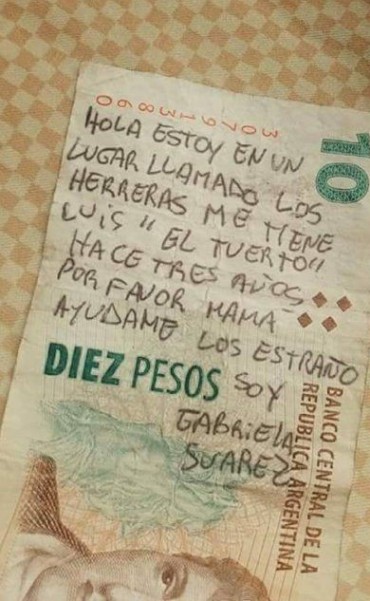 3079138660
10
HOLA ESTOY EN UN
LUGAR LLAMADO LOS
HERRERAS ME TIENE
LUIS "EL TUERTO"
HACE TRES AÑOS
POR FAVOR MAMA
AYUDAME LOS ESTRAÑO
DIEZ PESOS
SOY
GABRIELA
SUAREZ
BANCO CENTRAL DE LA
REPUBLICA ARGENTINA